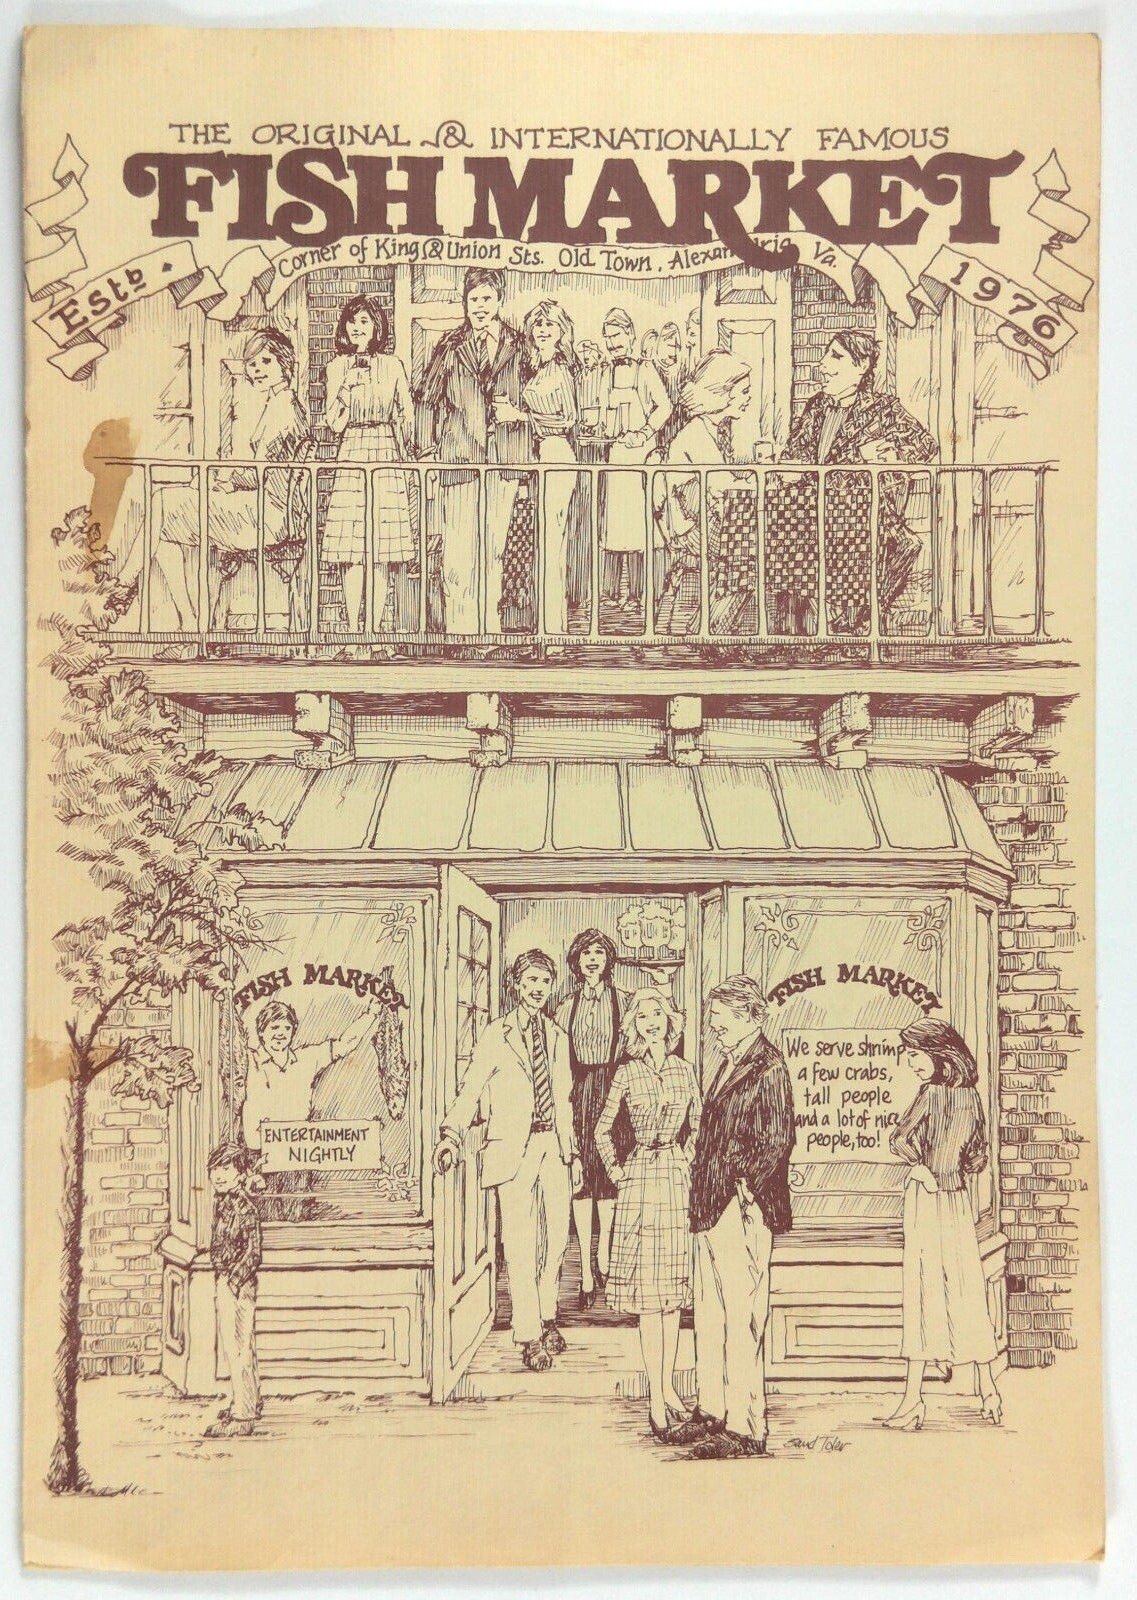 THE ORIGINAL & INTERNATIONALLY FAMOUS
FISH MARKET
Corner of King & Union Sts. Old Town, Alexandria Va.
Estb.
1976
FISH MARKET
ENTERTAINMENT
NIGHTLY
FISH MARKET
We serve shrimp,
a few crabs,
tall people
and a lot of nice
people, too!